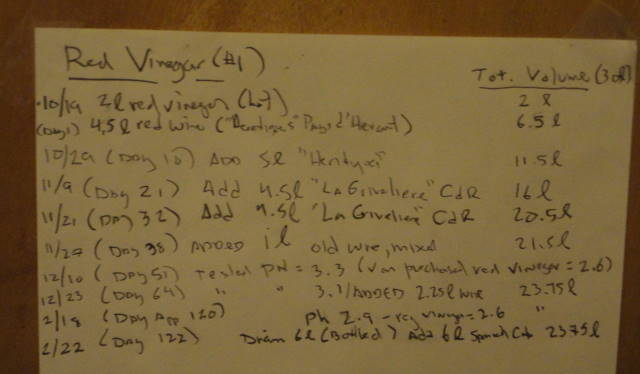 Red Vinegar (#1)
Tot. Volume (30l)
10/19 2l red vinegar (hot) 2 l
(Day 1) 4.5l red wine (" Pays d'Herault) 6.5 l
10/29 (Day 10) ADD 5l 11.5l
11/9 (Day 21) Add 4.5l "LA Giveliere" CdR 16l
11/21 (DAY 32) Add 4.5l "La Giveliere" CdR 20.5l
11/27 (Day 38) ADDED 1l old wine, mixed 21.5l
12/10 (DAY 51) Tested PH = 3.3 (Van purchased red vinegar = 2.6)
12/23 (Day 64) " " 3.1/ADDED 2.25l wine 23.75l
2/18 (Day App 120) Ph 2.9 - reg vinegar = 2.6 "
2/22 (Day 122) Drain 6l (Bottled) Add 6l Spanish Cab 23.75l